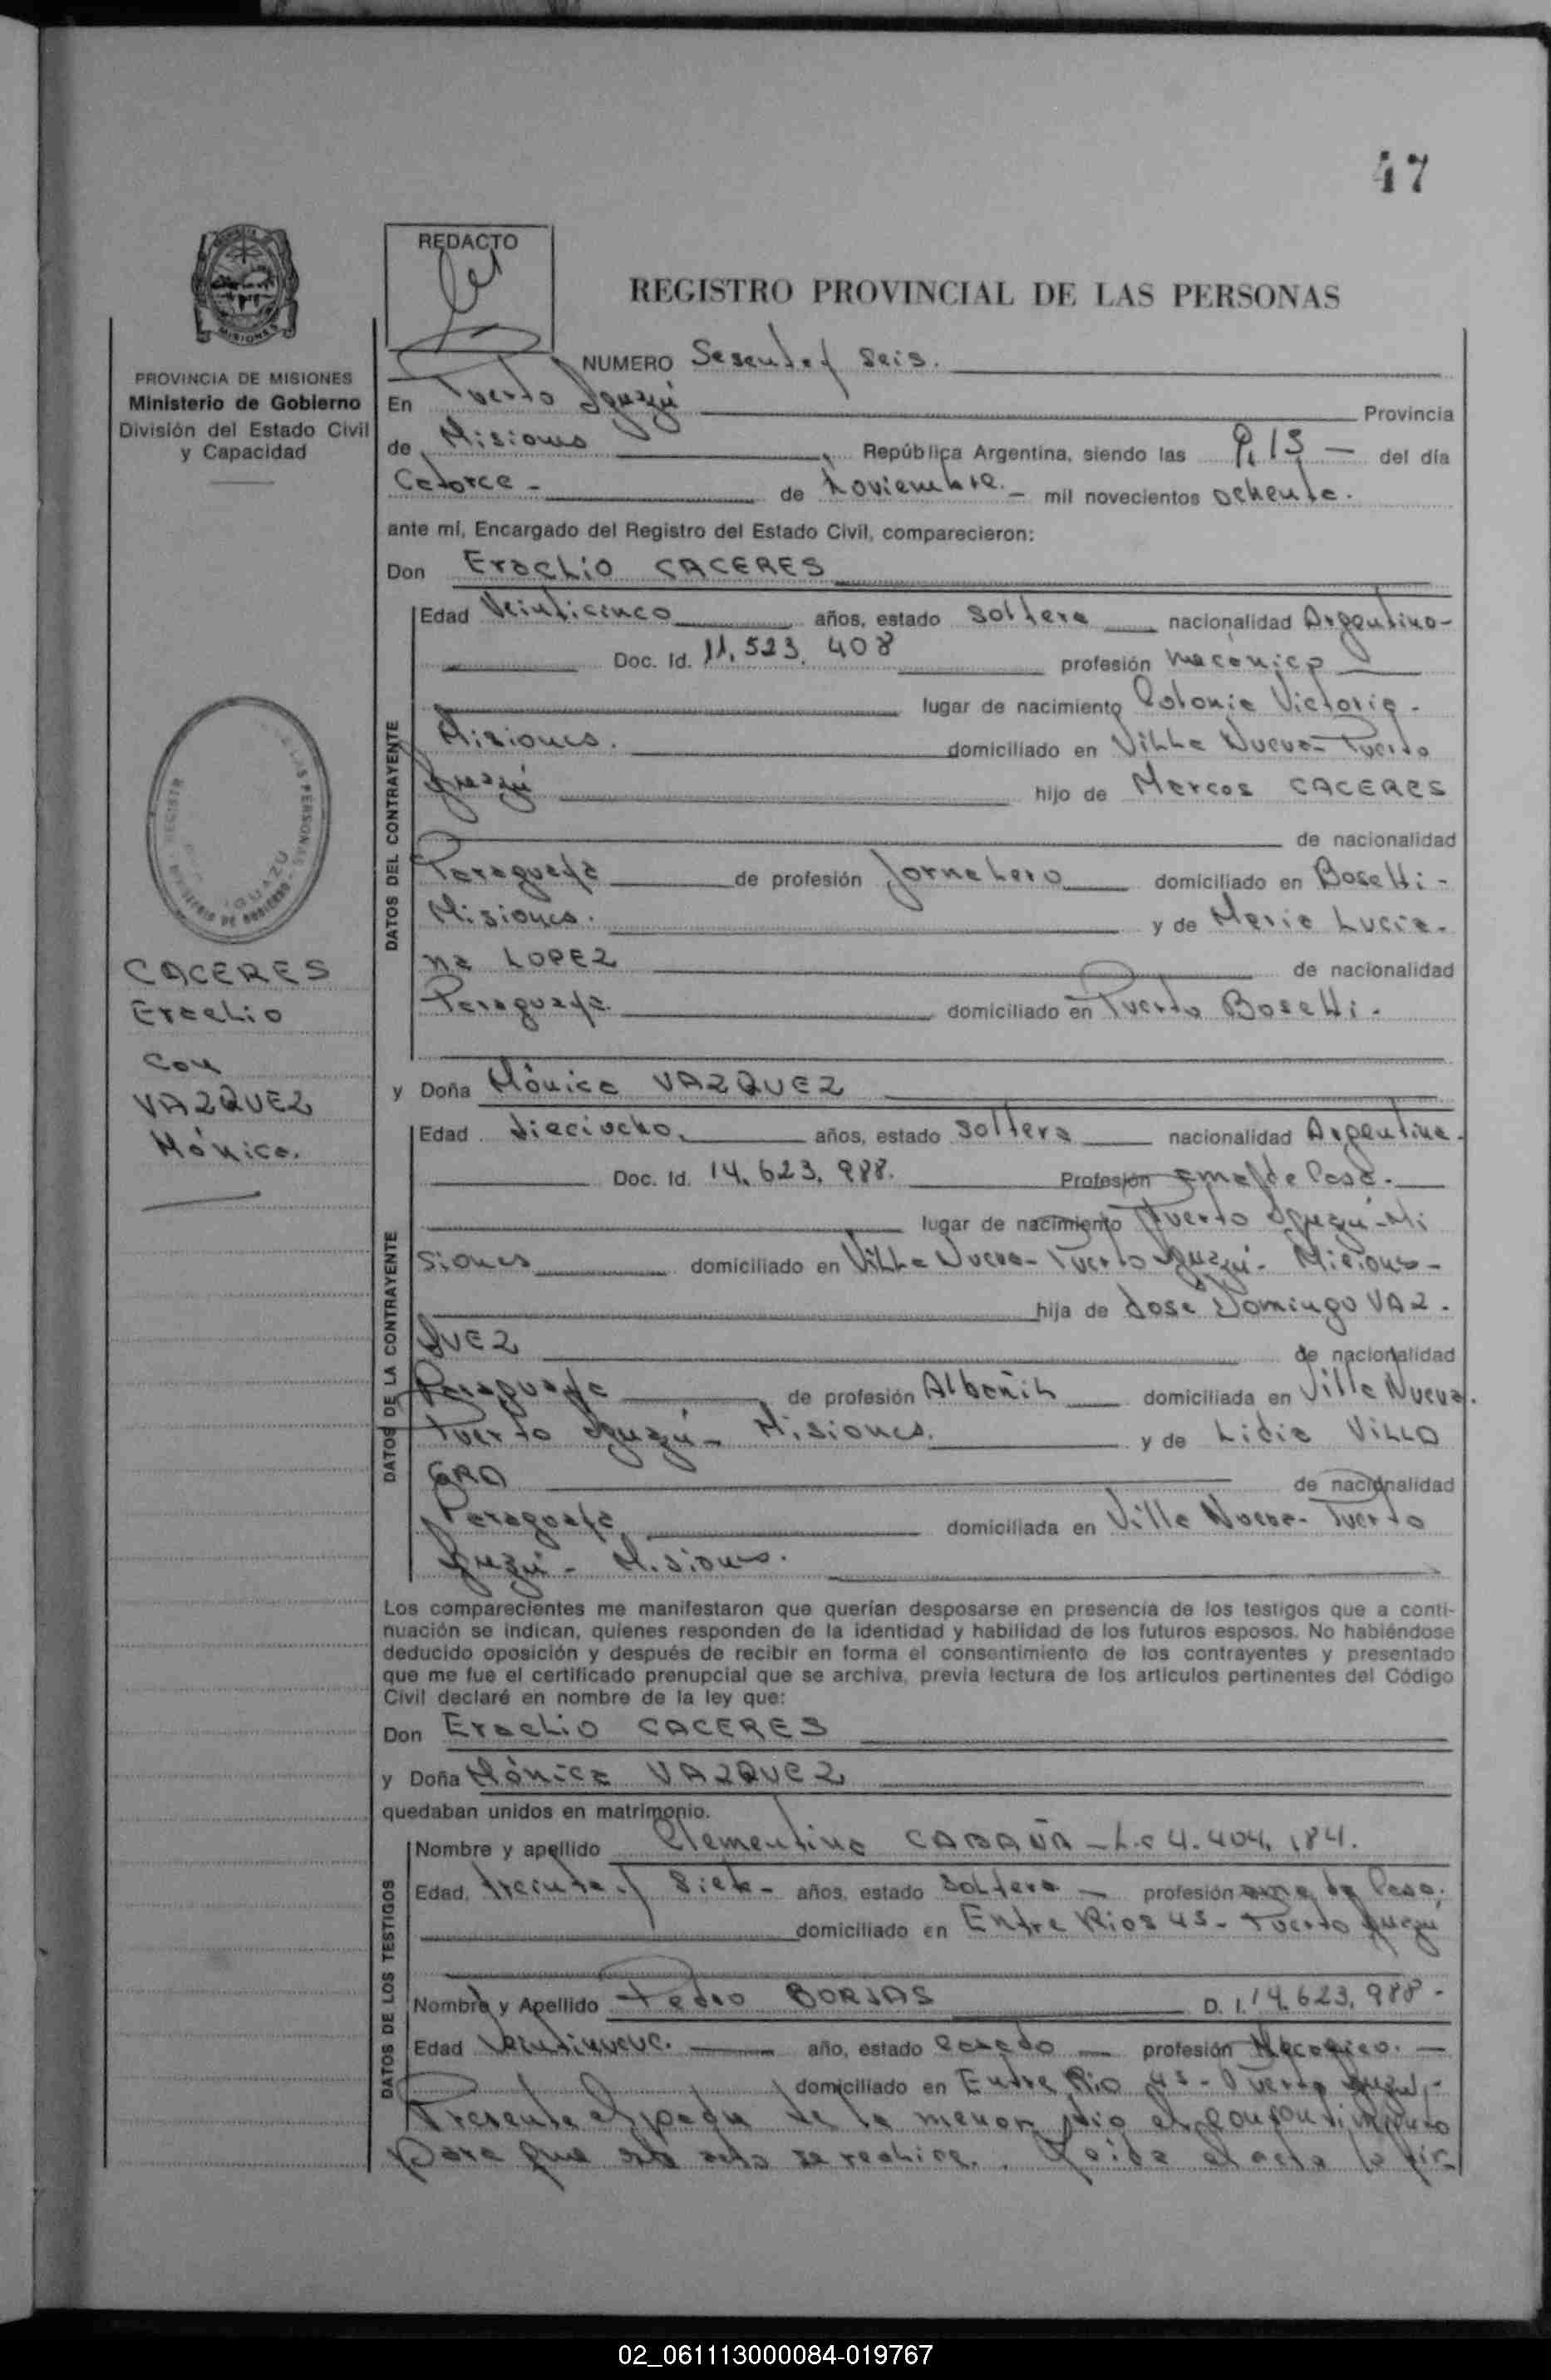 47
REDACTO
REGISTRO PROVINCIAL DE LAS PERSONAS
MISIONES
PROVINCIA DE MISIONES
Ministerio de Gobierno
División del Estado Civil
y Capacidad
CACERES
Eraclio
Con
VAZQUEZ
Mónica.
NUMERO Sesenta y seis.
En Puerto Iguazú Provincia
de Misiones, República Argentina, siendo las 9,15 — del día
Catorce - de Noviembre. - mil novecientos ochenta.
ante mí, Encargado del Registro del Estado Civil, comparecieron:
Don Eraclio CACERES
Edad Veinticinco años, estado soltero nacionalidad Argentino-
Doc. Id. 11.523.408 profesión mecánico
lugar de nacimiento Colonia Victoria -
Misiones. domiciliado en Villa Nueva- Puerto
Iguazú hijo de Marcos CACERES
de nacionalidad
Paraguaya de profesión Jornalero domiciliado en Bosetti -
Misiones. y de Maria Lucia-
na LOPEZ de nacionalidad
Paraguaya. domiciliado en Puerto Bosetti.
y Doña Mónica VAZQUEZ
Edad dieciocho, años, estado soltera nacionalidad Argentina.
Doc. Id. 14.623.988. Profesión Ema de Casa.
lugar de nacimiento Puerto Iguazú-Mi
siones domiciliado en Villa Nueva- Puerto Iguazú- Misiones-
hija de Jose Domingo VAZ-
QUEZ de nacionalidad
Paraguaya de profesión Albañil domiciliada en Villa Nueva.
Puerto Iguazú- Misiones. y de Lidia VILLA
GRA de nacionalidad
Paraguaya domiciliada en Villa Nueva- Puerto
Iguazú- Misiones.
Los comparecientes me manifestaron que querían desposarse en presencia de los testigos que a conti-
nuación se indican, quienes responden de la identidad y habilidad de los futuros esposos. No habiéndose
deducido oposición y después de recibir en forma el consentimiento de los contrayentes y presentado
que me fue el certificado prenupcial que se archiva, previa lectura de los artículos pertinentes del Código
Civil declaré en nombre de la ley que:
Don Eraclio CACERES
y Doña Mónica VAZQUEZ
quedaban unidos en matrimonio.
Nombre y apellido Clementina CABAÑA - L.C 4.404.184.
Edad, treinta y siete- años, estado soltera - profesión ama de Casa.
domiciliado en Entre Rios 45- Puerto Iguazú
Nombre y Apellido Pedro BORJAS D. I. 14.623.988-
Edad Veintinueve. año, estado casado profesión Mecánico. —
domiciliado en Entre Rio 45- Puerto Iguazú-
Presente el padre de la menor dio el consentimiento
para que este acto se realice. Leida el acta la fir-
DATOS DEL CONTRAYENTE
DATOS DE LA CONTRAYENTE
DATOS DE LOS TESTIGOS
02_061113000084-019767